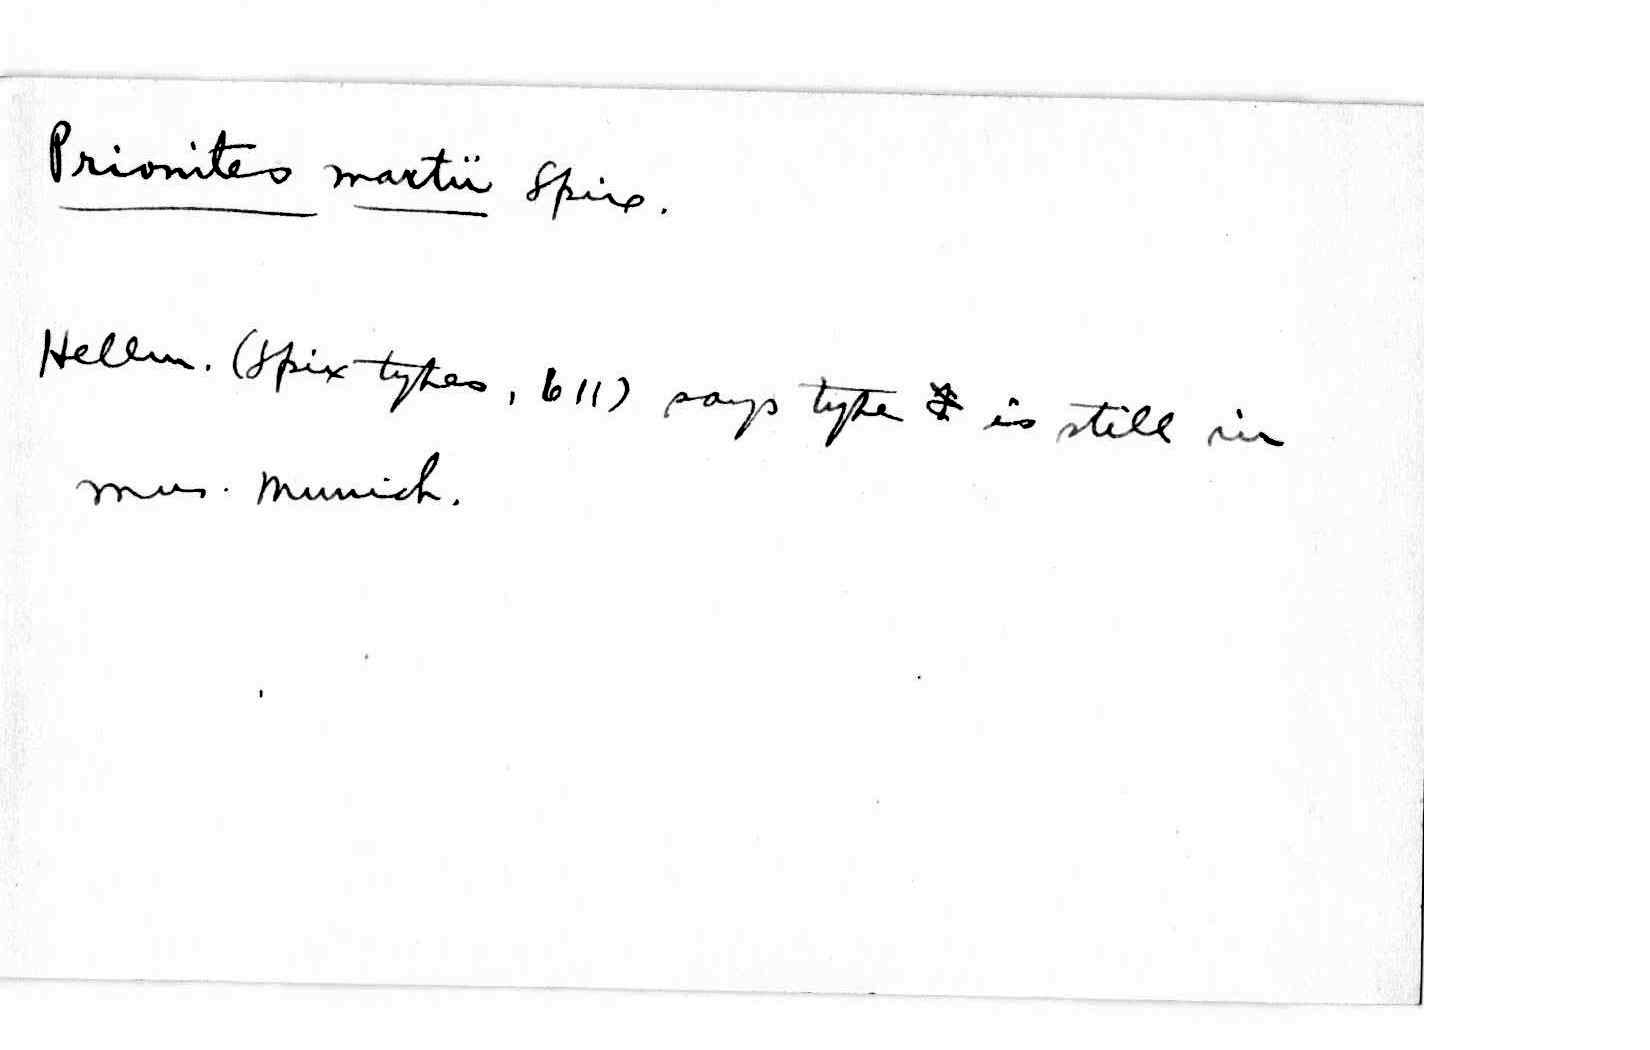 Prionites martii Spix.
Hellm. (Spix types, 611) says type is still in
mus. Munich.